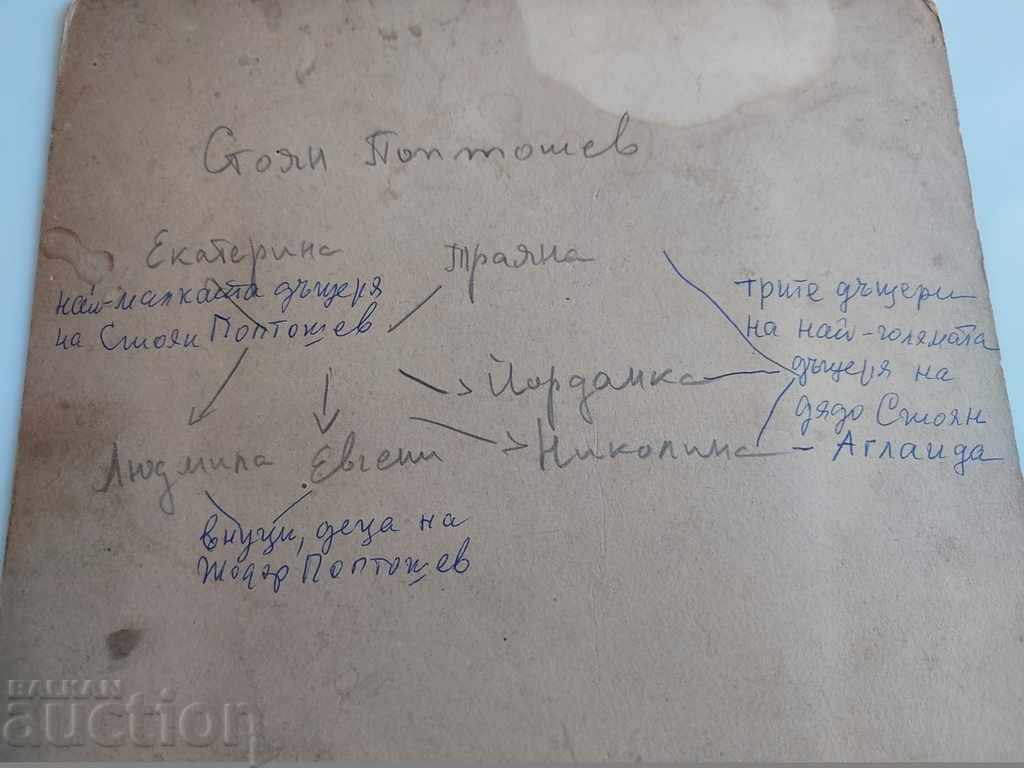 Стоян Поптошев
Екатерина
Траяна
най-малката дъщеря
на Стоян Поптошев
трите дъщери
на най-голямата
дъщеря на
дядо Стоян
- Аглаида
Йорданка
Николина
Людмила
Евгени
внуци, деца на
Тодор Поптошев
BALKAN
auction